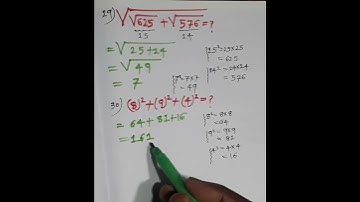 29) √(√625 + √576) = ?
25 24
= √25+24
= √49
= 7
25² = 25×25
= 625
24² = 24×24
= 576
7² = 7×7
= 49
30) (8)² + (9)² + (4)² = ?
= 64 + 81 + 16
= 161
8² = 8×8
= 64
9² = 9×9
= 81
4² = 4×4
= 16